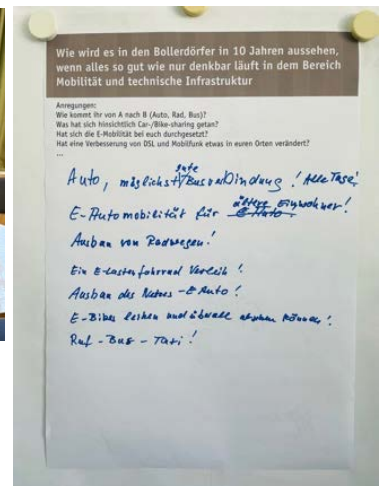 Wie wird es in den Bollerdörfer in 10 Jahren aussehen,
wenn alles so gut wie nur denkbar läuft in dem Bereich
Mobilität und technische Infrastruktur
Anregungen:
Wie kommt ihr von A nach B (Auto, Rad, Bus)?
Was hat sich hinsichtlich Car-/Bike-sharing getan?
Hat sich die E-Mobilität bei euch durchgesetzt?
Hat eine Verbesserung von DSL und Mobilfunk etwas in euren Orten verändert?
...
gute
Auto, möglichst Busverbindung! Alle Tage!
ältere Einwohner!
E-Automobilität für E-Auto.
Ausbau von Radwegen!
Ein E-Lastenfahrrad Verleih!
Ausbau des Netzes - E-Auto!
E-Bikes leihen und überall abstellen können!
Ruf - Bus - Taxi!